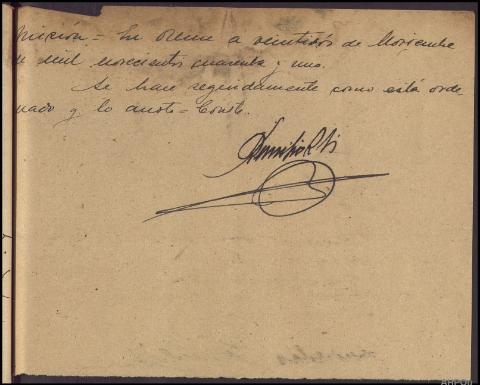 nición = En Orense a veintidós de Noviembre
de mil novecientos cuarenta y uno.
Se hace seguidamente como está orde
nado y lo anoto = Conste.
AHPOu